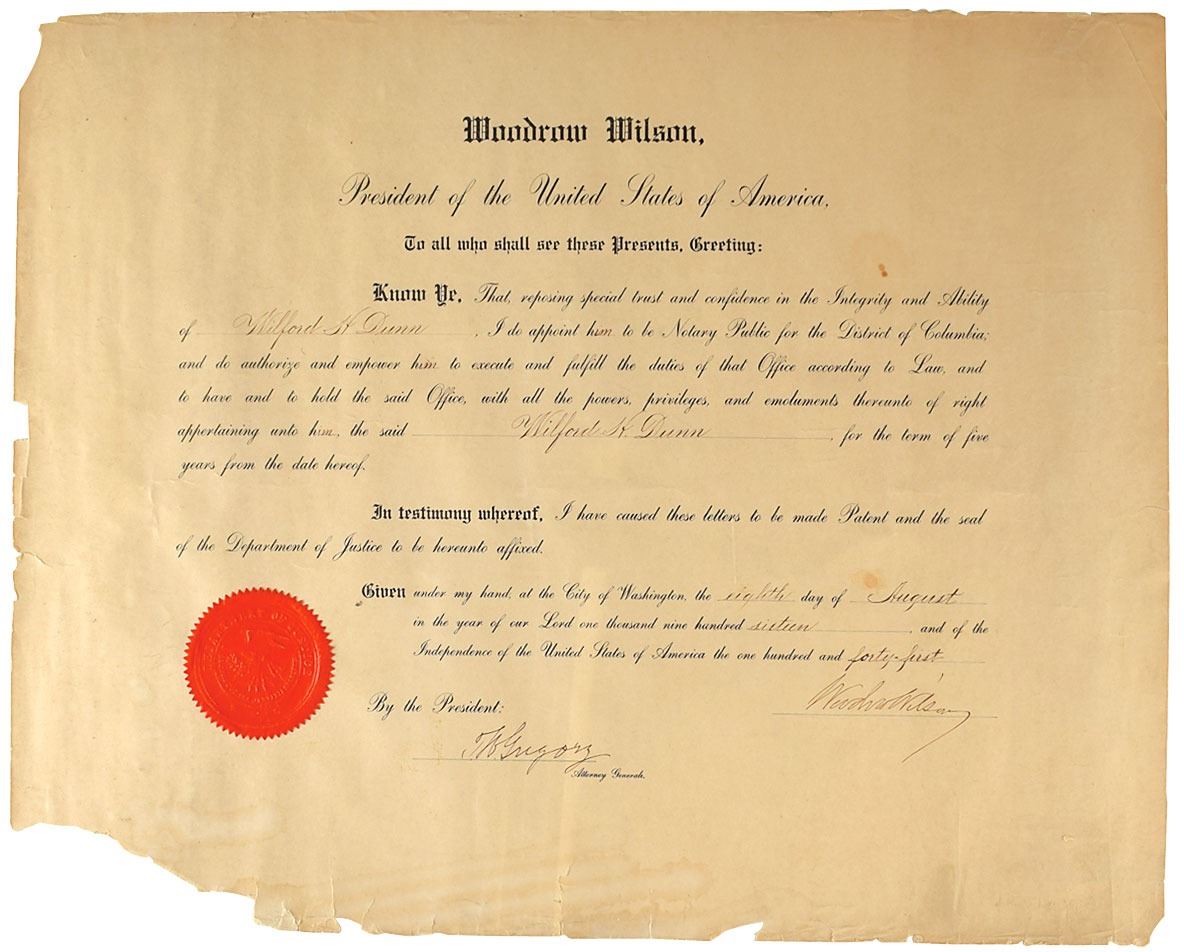 Woodrow Wilson,
President of the United States of America,
To all who shall see these Presents, Greeting:
Know Ye, That, reposing special trust and confidence in the Integrity and Ability
of Wilford H. Dunn, I do appoint him to be Notary Public for the District of Columbia;
and do authorize and empower him to execute and fulfill the duties of that Office according to Law, and
to have and to hold the said Office, with all the powers, privileges, and emoluments thereunto of right
appertaining unto him, the said Wilford H. Dunn, for the term of five
years from the date hereof.
In testimony whereof, I have caused these letters to be made Patent and the seal
of the Department of Justice to be hereunto affixed.
Given under my hand, at the City of Washington, the eighth day of August
in the year of our Lord one thousand nine hundred sixteen, and of the
Independence of the United States of America the one hundred and forty-first
Woodrow Wilson
By the President:
T.W. Gregory
Attorney General.